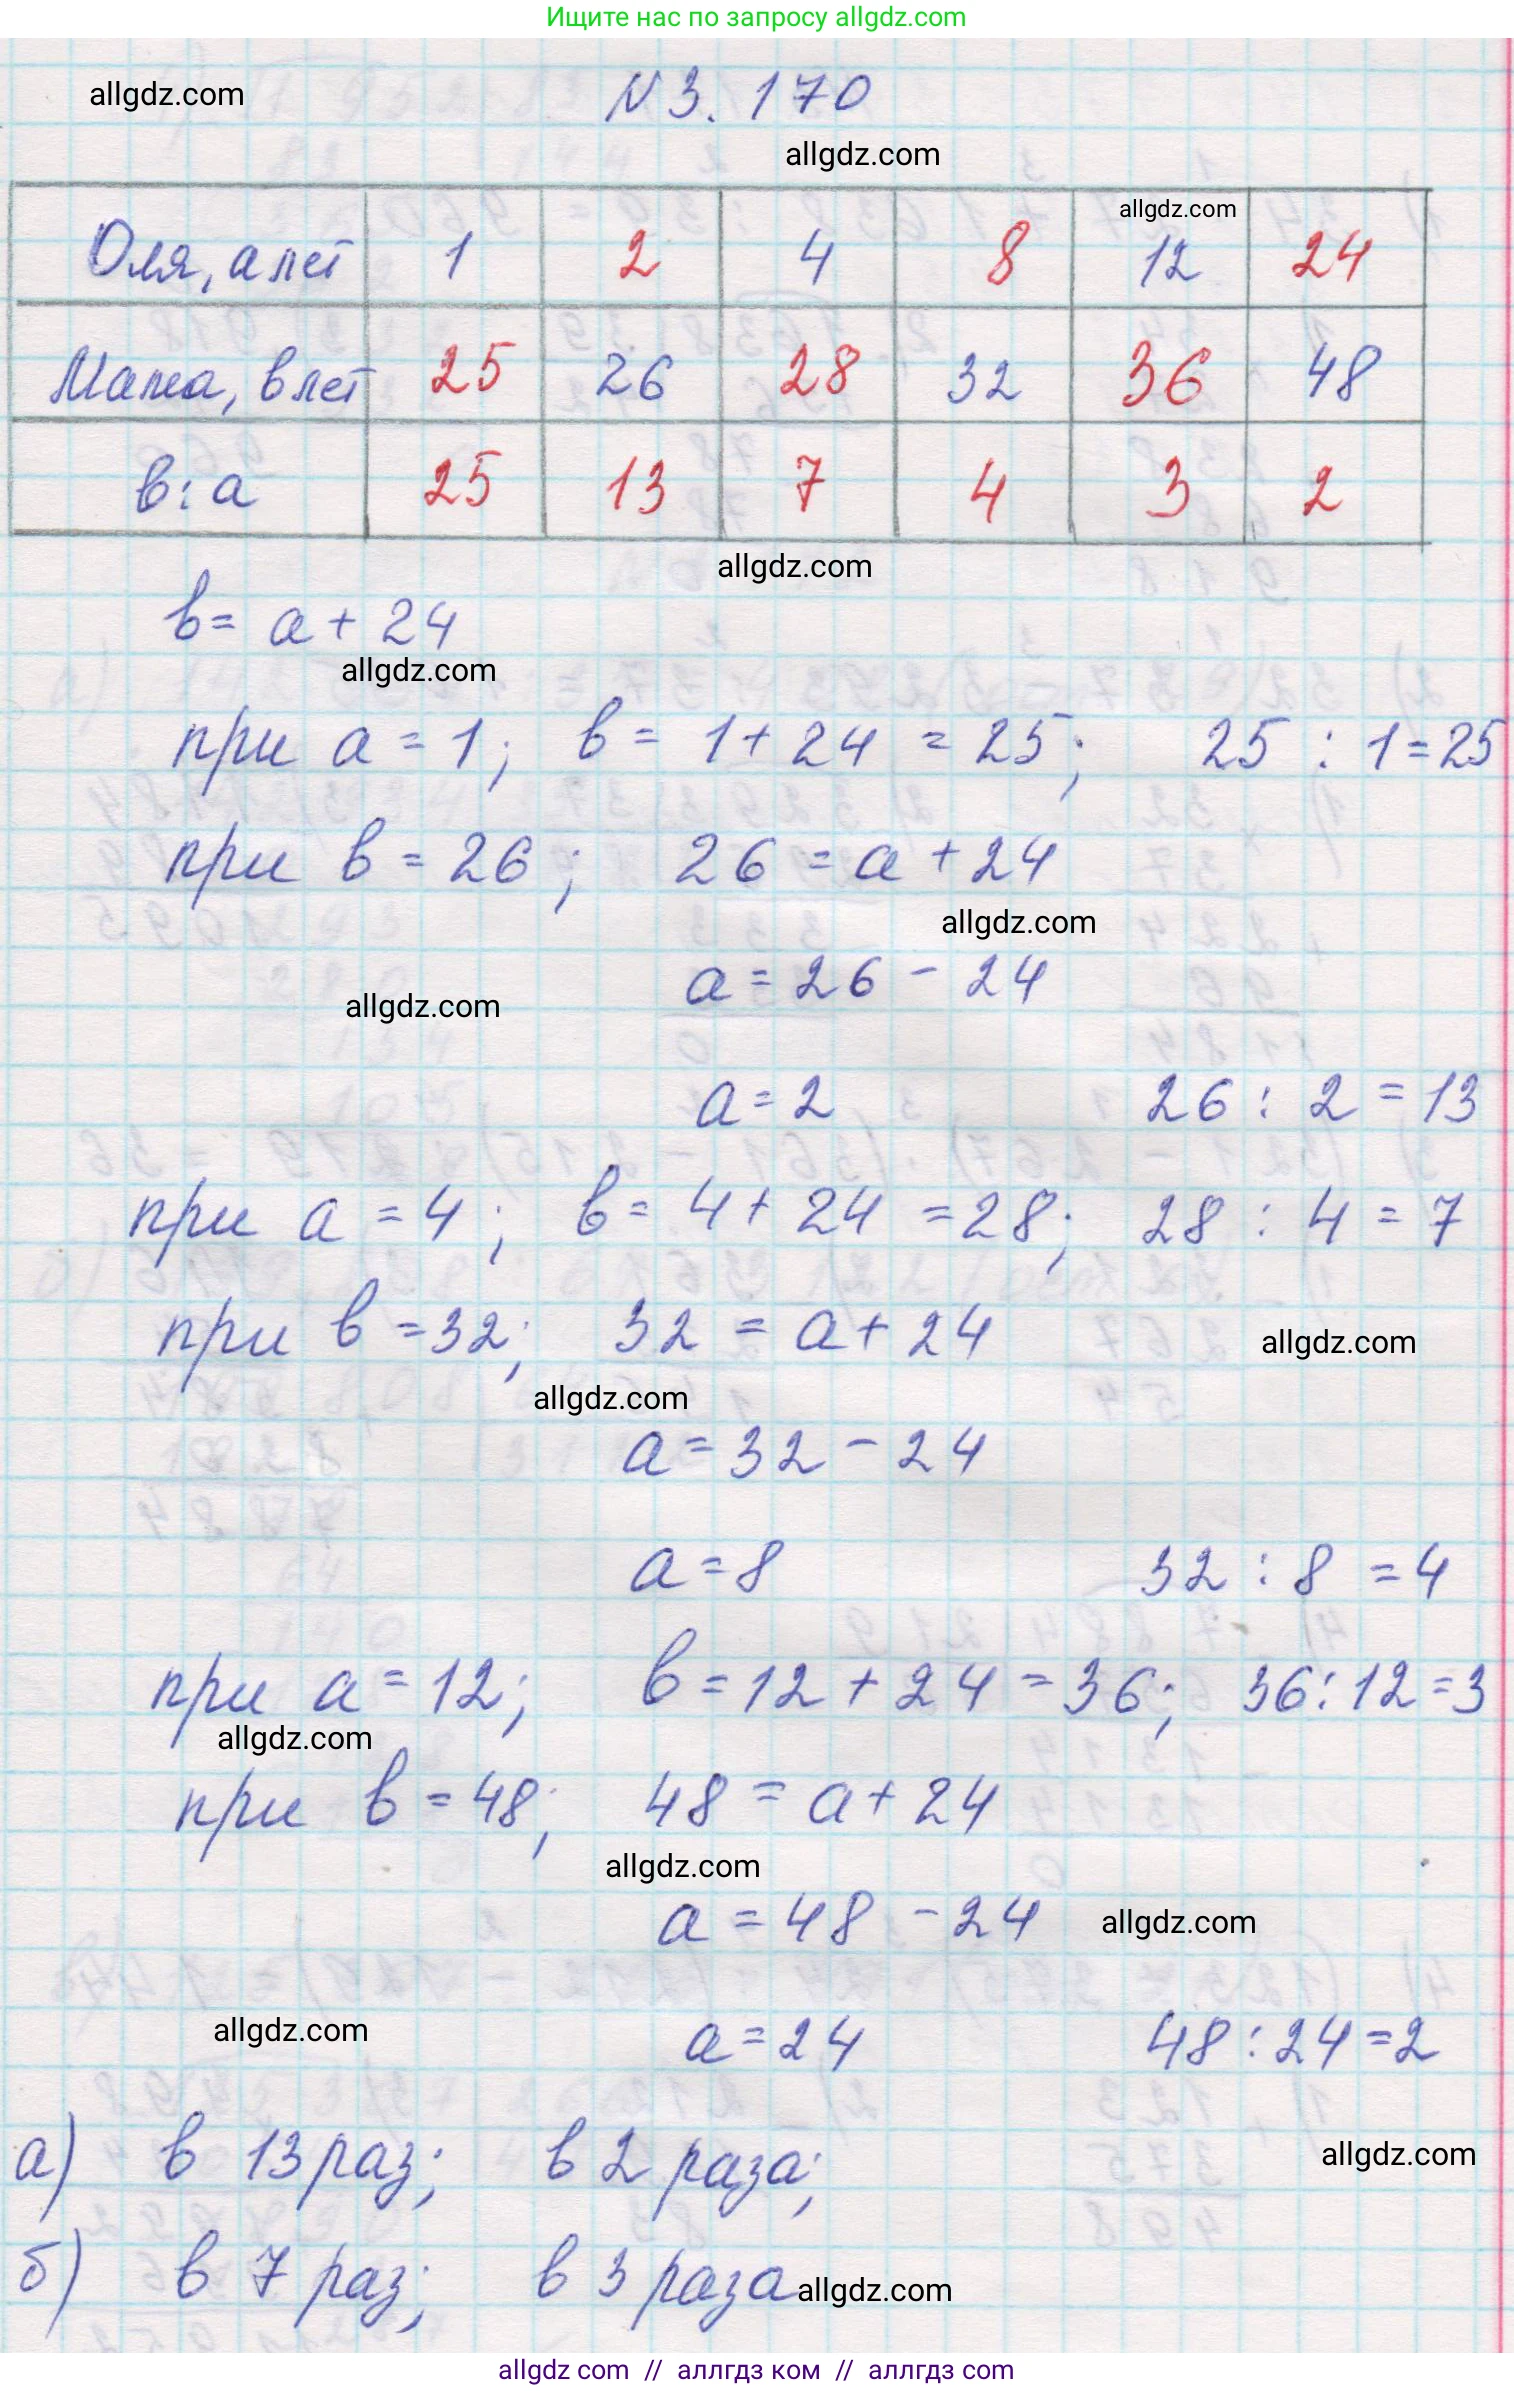 Ищите нас по запросу allgdz.com
allgdz.com
N 3. 170
allgdz.com
allgdz.com
Оля, a лет 1 2 4 8 12 24
Мама, в лет 25 26 28 32 36 48
в : a 25 13 7 4 3 2
allgdz.com
в = a + 24
allgdz.com
при a = 1; в = 1 + 24 = 25; 25 : 1 = 25
при в = 26; 26 = a + 24
allgdz.com
a = 26 - 24
allgdz.com
a = 2 26 : 2 = 13
при a = 4; в = 4 + 24 = 28; 28 : 4 = 7
при в = 32; 32 = a + 24
allgdz.com
allgdz.com
a = 32 - 24
a = 8 32 : 8 = 4
при a = 12; в = 12 + 24 = 36; 36 : 12 = 3
allgdz.com
при в = 48; 48 = a + 24
allgdz.com
a = 48 - 24
allgdz.com
allgdz.com
a = 24 48 : 24 = 2
а) в 13 раз; в 2 раза;
allgdz.com
б) в 7 раз; в 3 раза
allgdz.com
allgdz com // аллгдз ком // аллгдз com